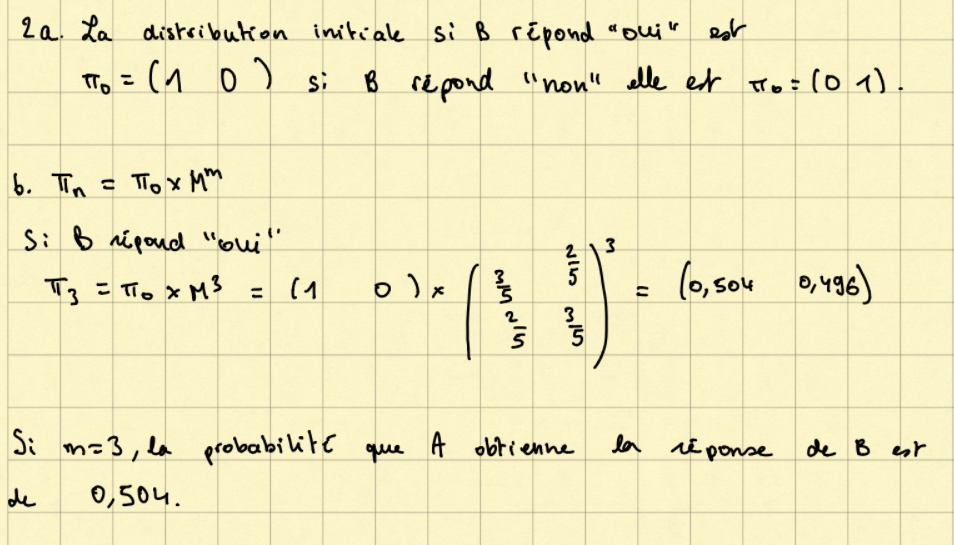 2a. La distribution initiale si B répond "oui" est
π₀ = (1 0) si B répond "non" elle est π₀ = (0 1).
b. πₙ = π₀ × Mᵐ
Si B répond "oui"
π₃ = π₀ × M³ = (1 0) × (3/5 2/5 2/5 3/5)³ = (0,504 0,496)
Si m=3, la probabilité que A obtienne la réponse de B est
de 0,504.